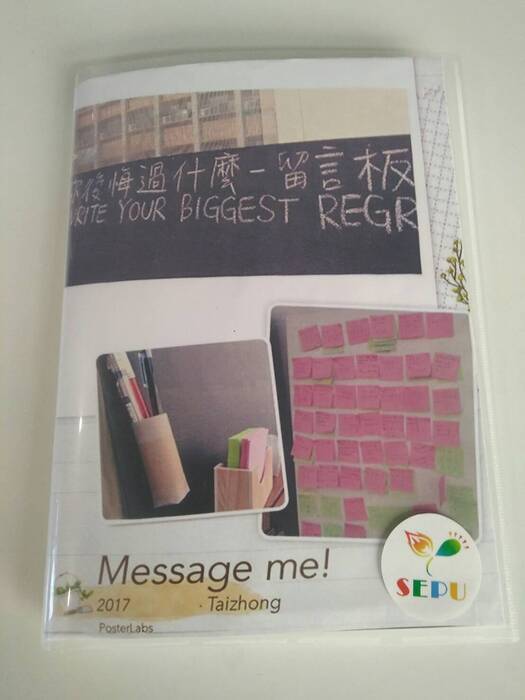 後悔過什麼-留言板
WRITE YOUR BIGGEST REGR
Message me!
2017 · Taizhong
PosterLabs
SEPU